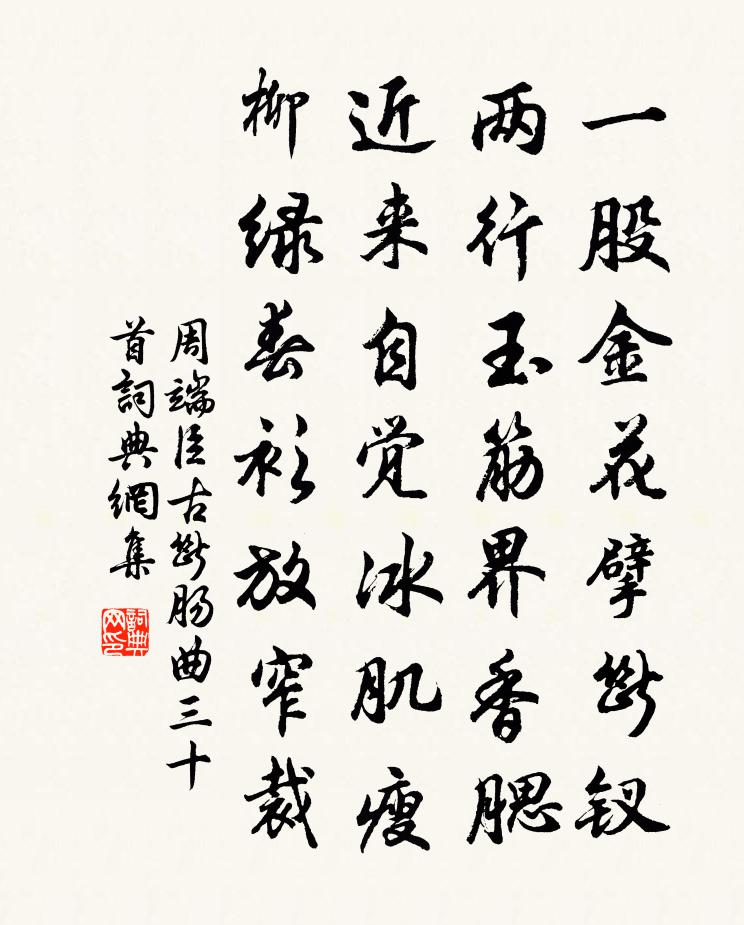 一股金花擘斷钗
两行玉筋界香腮
近来自觉冰肌瘦
柳緑春衫放窄裁
周端臣古斷肠曲三十
首詞典網集
詞典
网印